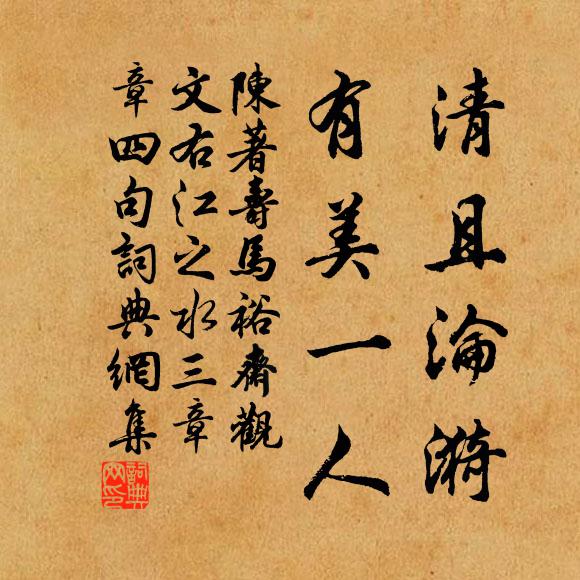 清且淪漪
有美一人
陳著壽馬裕齋觀
文右江之水三章
章四句詞典網集
詞典
网印